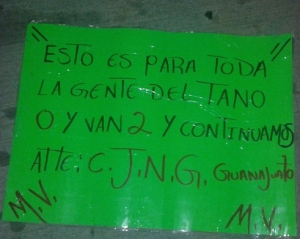 "ESTO ES PARA TODA
LA GENTE DEL TANO
O Y VAN 2 Y CONTINUAMOS
ATTE: C.J.N.G. GUANAJUATO
M.V. M.V.